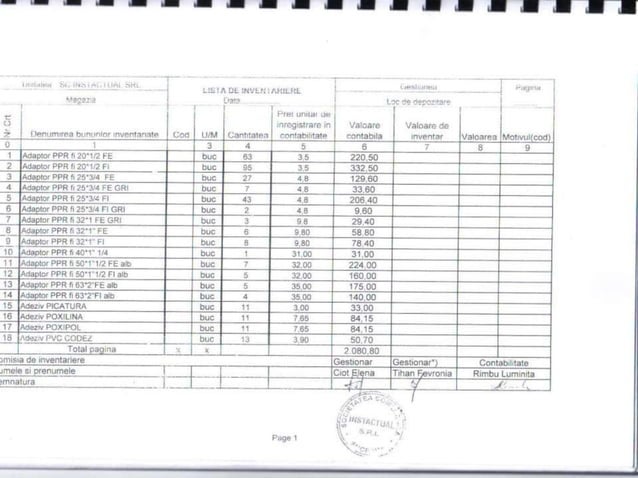 Unitatea SC INSTACTUAL SRL LISTA DE INVENTARIERE Gestiunea Pagina
Magazia Data Loc de depozitare
Nr Crt Denumirea bunurilor inventariate Cod U/M Cantitatea Pret unitar de inregistrare in contabilitate Valoare contabila Valoare de inventar Valoarea Motivul(cod)
0 1 3 4 5 6 7 8 9
1 Adaptor PPR fi 20*1/2 FE buc 63 3,5 220,50
2 Adaptor PPR fi 20*1/2 FI buc 95 3,5 332,50
3 Adaptor PPR fi 25*3/4 FE buc 27 4,8 129,60
4 Adaptor PPR fi 25*3/4 FE GRI buc 7 4,8 33,60
5 Adaptor PPR fi 25*3/4 FI buc 43 4,8 206,40
6 Adaptor PPR fi 25*3/4 FI GRI buc 2 4,8 9,60
7 Adaptor PPR fi 32*1 FE GRI buc 3 9,8 29,40
8 Adaptor PPR fi 32*1" FE buc 6 9,80 58,80
9 Adaptor PPR fi 32*1" FI buc 8 9,80 78,40
10 Adaptor PPR fi 40*1" 1/4 buc 1 31,00 31,00
11 Adaptor PPR fi 50*1"1/2 FE alb buc 7 32,00 224,00
12 Adaptor PPR fi 50*1"1/2 FI alb buc 5 32,00 160,00
13 Adaptor PPR fi 63*2"FE alb buc 5 35,00 175,00
14 Adaptor PPR fi 63*2"FI alb buc 4 35,00 140,00
15 Adeziv PICATURA buc 11 3,00 33,00
16 Adeziv POXILINA buc 11 7,65 84,15
17 Adeziv POXIPOL buc 11 7,65 84,15
18 Adeziv PVC CODEZ buc 13 3,90 50,70
Total pagina x x 2.080,80
omisia de inventariere Gestionar Gestionar*) Contabilitate
umele si prenumele Ciot Elena Tihan Fevronia Rimbu Luminita
emnatura
INSTACTUAL
S.R.L.
Page 1